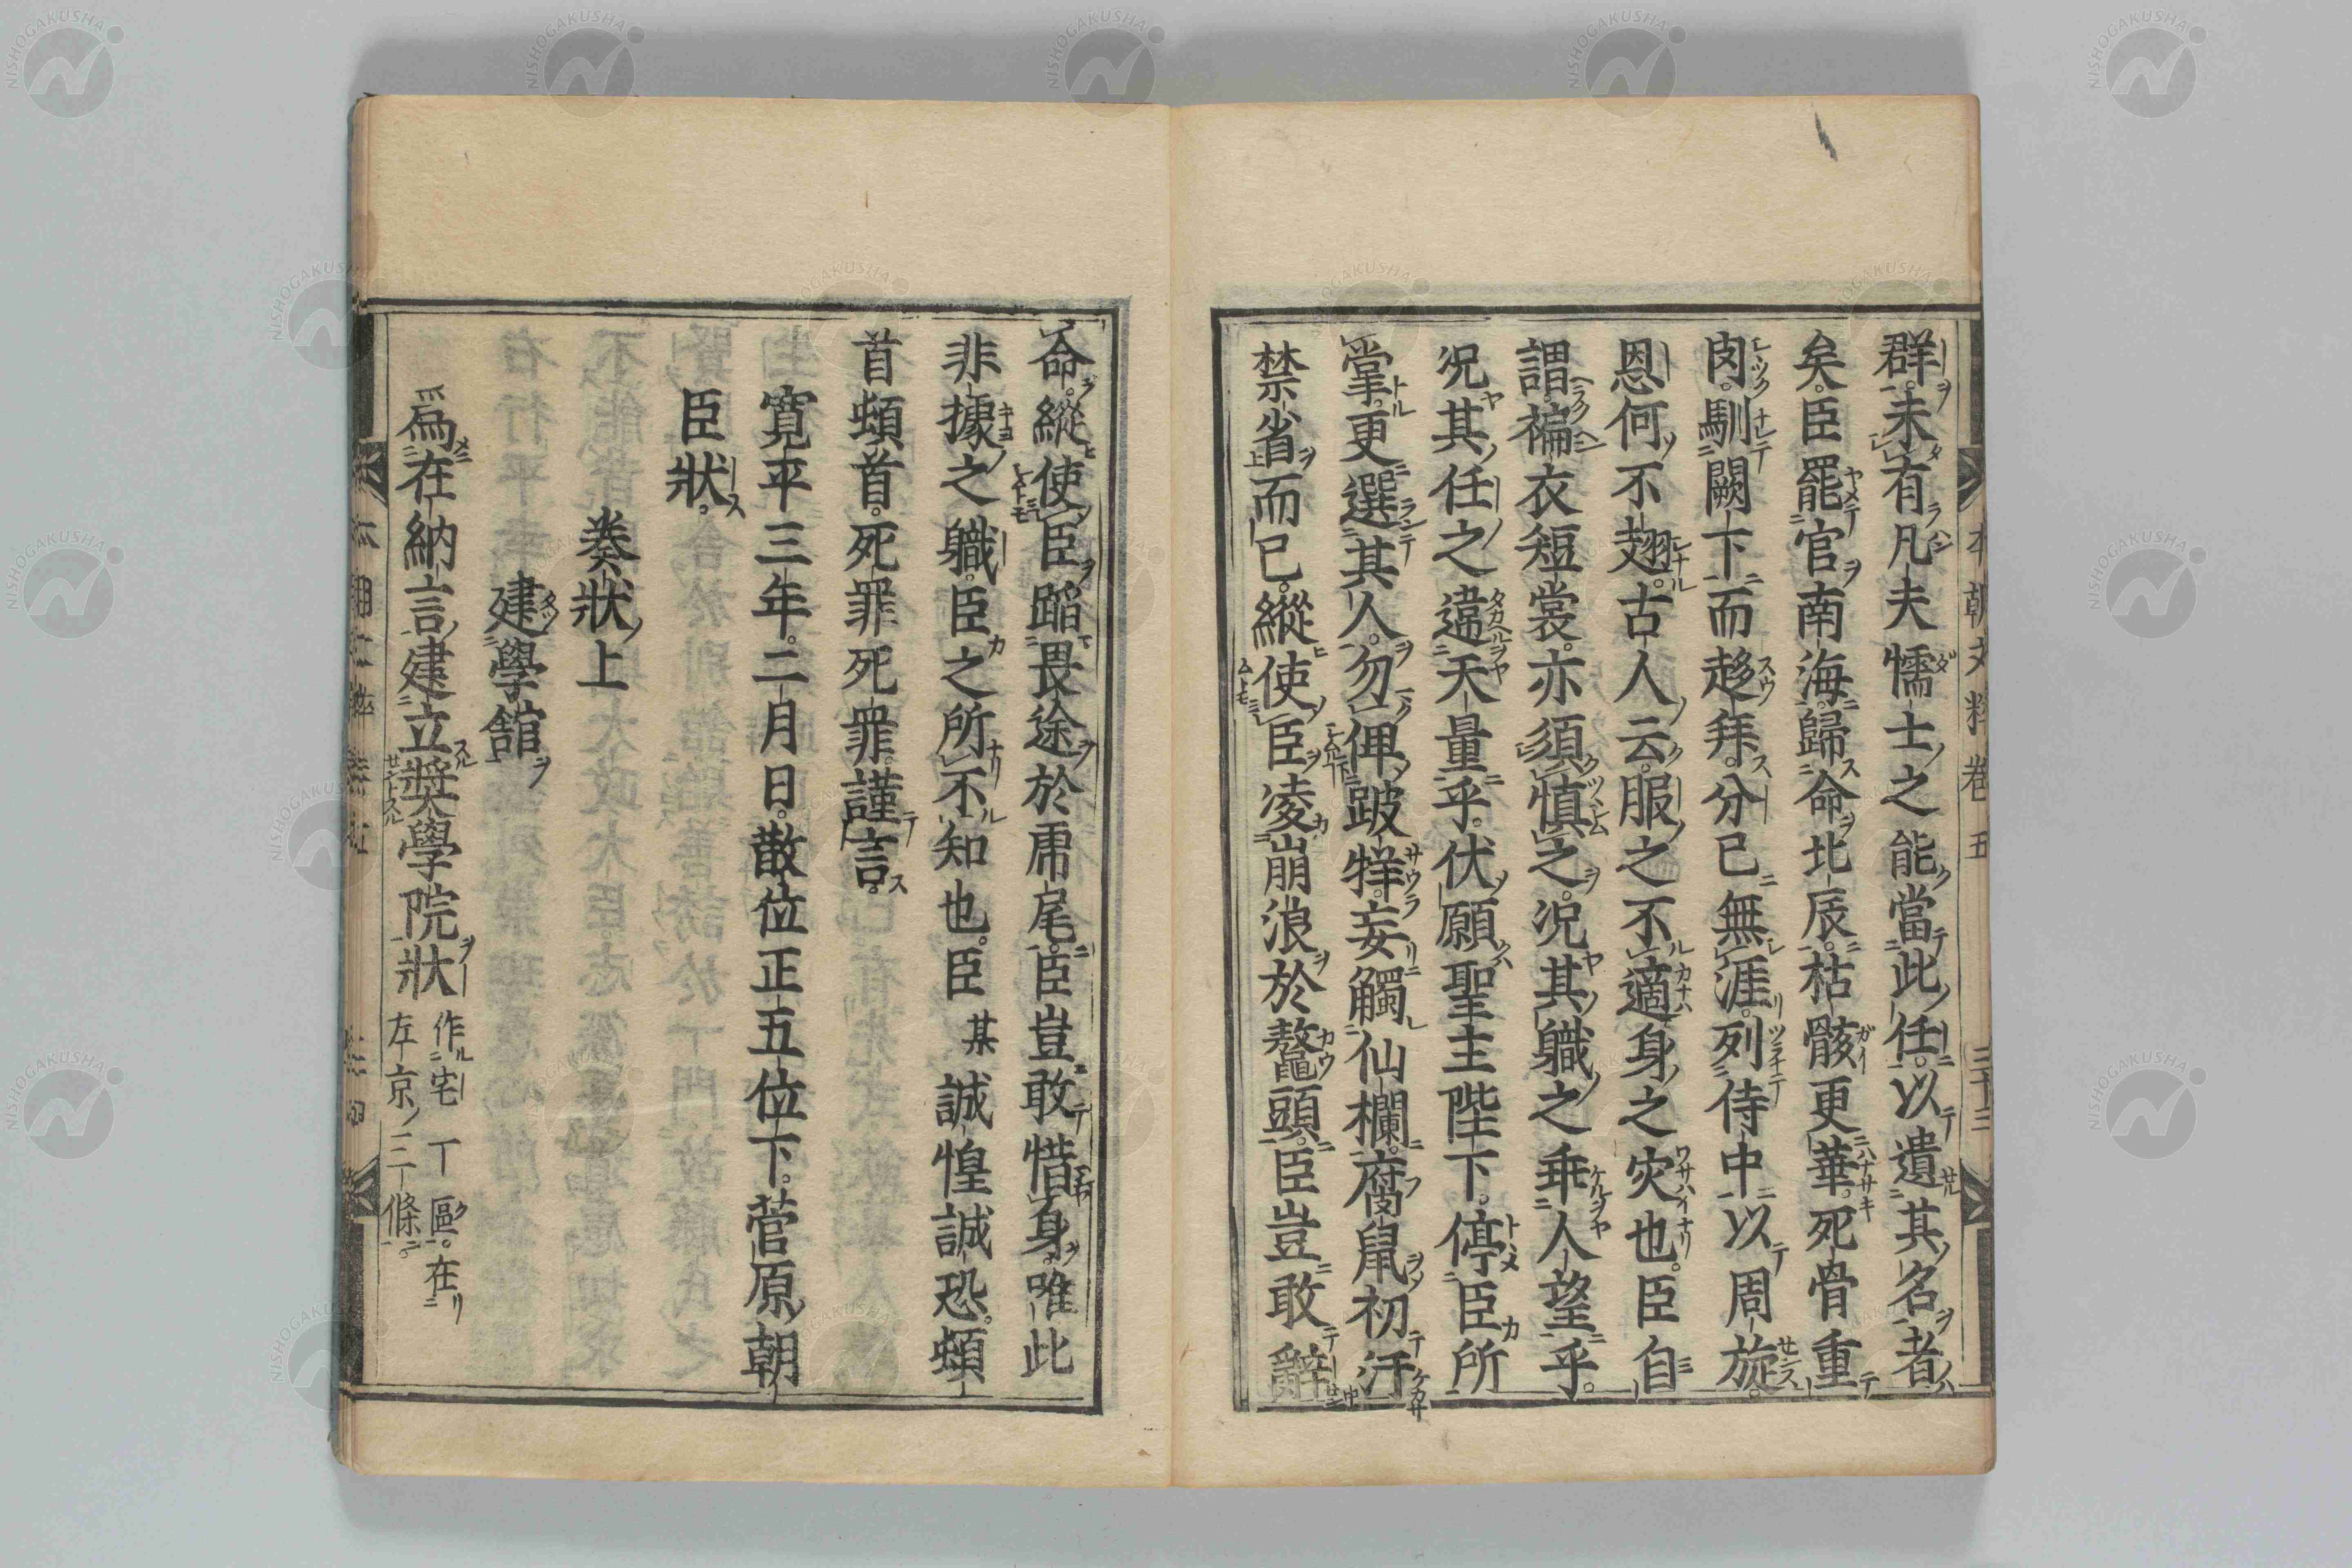 群。未有凡夫懦士之能當此任。以遺其名者
矣。臣罷官南海。歸命北辰。枯骸更華。死骨重
肉。馴闕下而趍拜。分已無涯。列侍中以周旋。
恩何不翅。古人云。服之不適身之灾也。臣自
謂。褊衣短裳。亦須慎之。況其職之乖人望乎。
況其任之違天量乎。伏願聖主陛下。停臣所
掌。更選其人。勿俾跛牂。妄觸仙欄。腐鼠初汙
禁省而已。縱使臣凌崩浪於鼇頭。臣豈敢辭
命。縱使臣蹈畏途於虎尾。臣豈敢惜身。唯此
非據之職。臣之所不知也。臣某誠惶誠恐。頓
首頓首。死罪死罪。謹言。
寛平三年。二月日。散位正五位下。菅原朝
臣狀。
奏狀上
建學舘
爲在納言建立奬學院狀
作宅一區。在
左京三條。
本朝文粹卷五
三十三